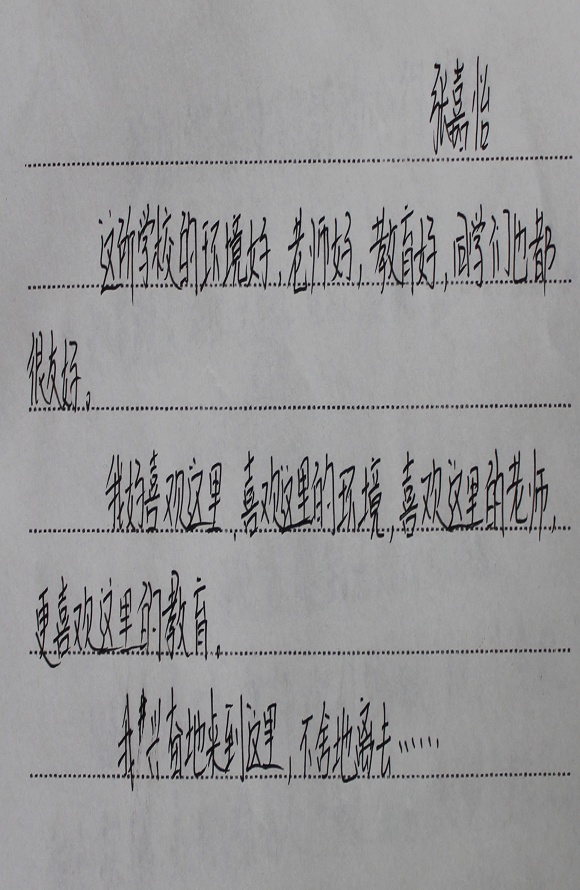 张嘉怡
这所学校的环境好，老师好，教育好，同学们也都
很友好。
我好喜欢这里，喜欢这里的环境，喜欢这里的老师，
更喜欢这里的教育。
我兴奋地来到这里，不舍地离去……